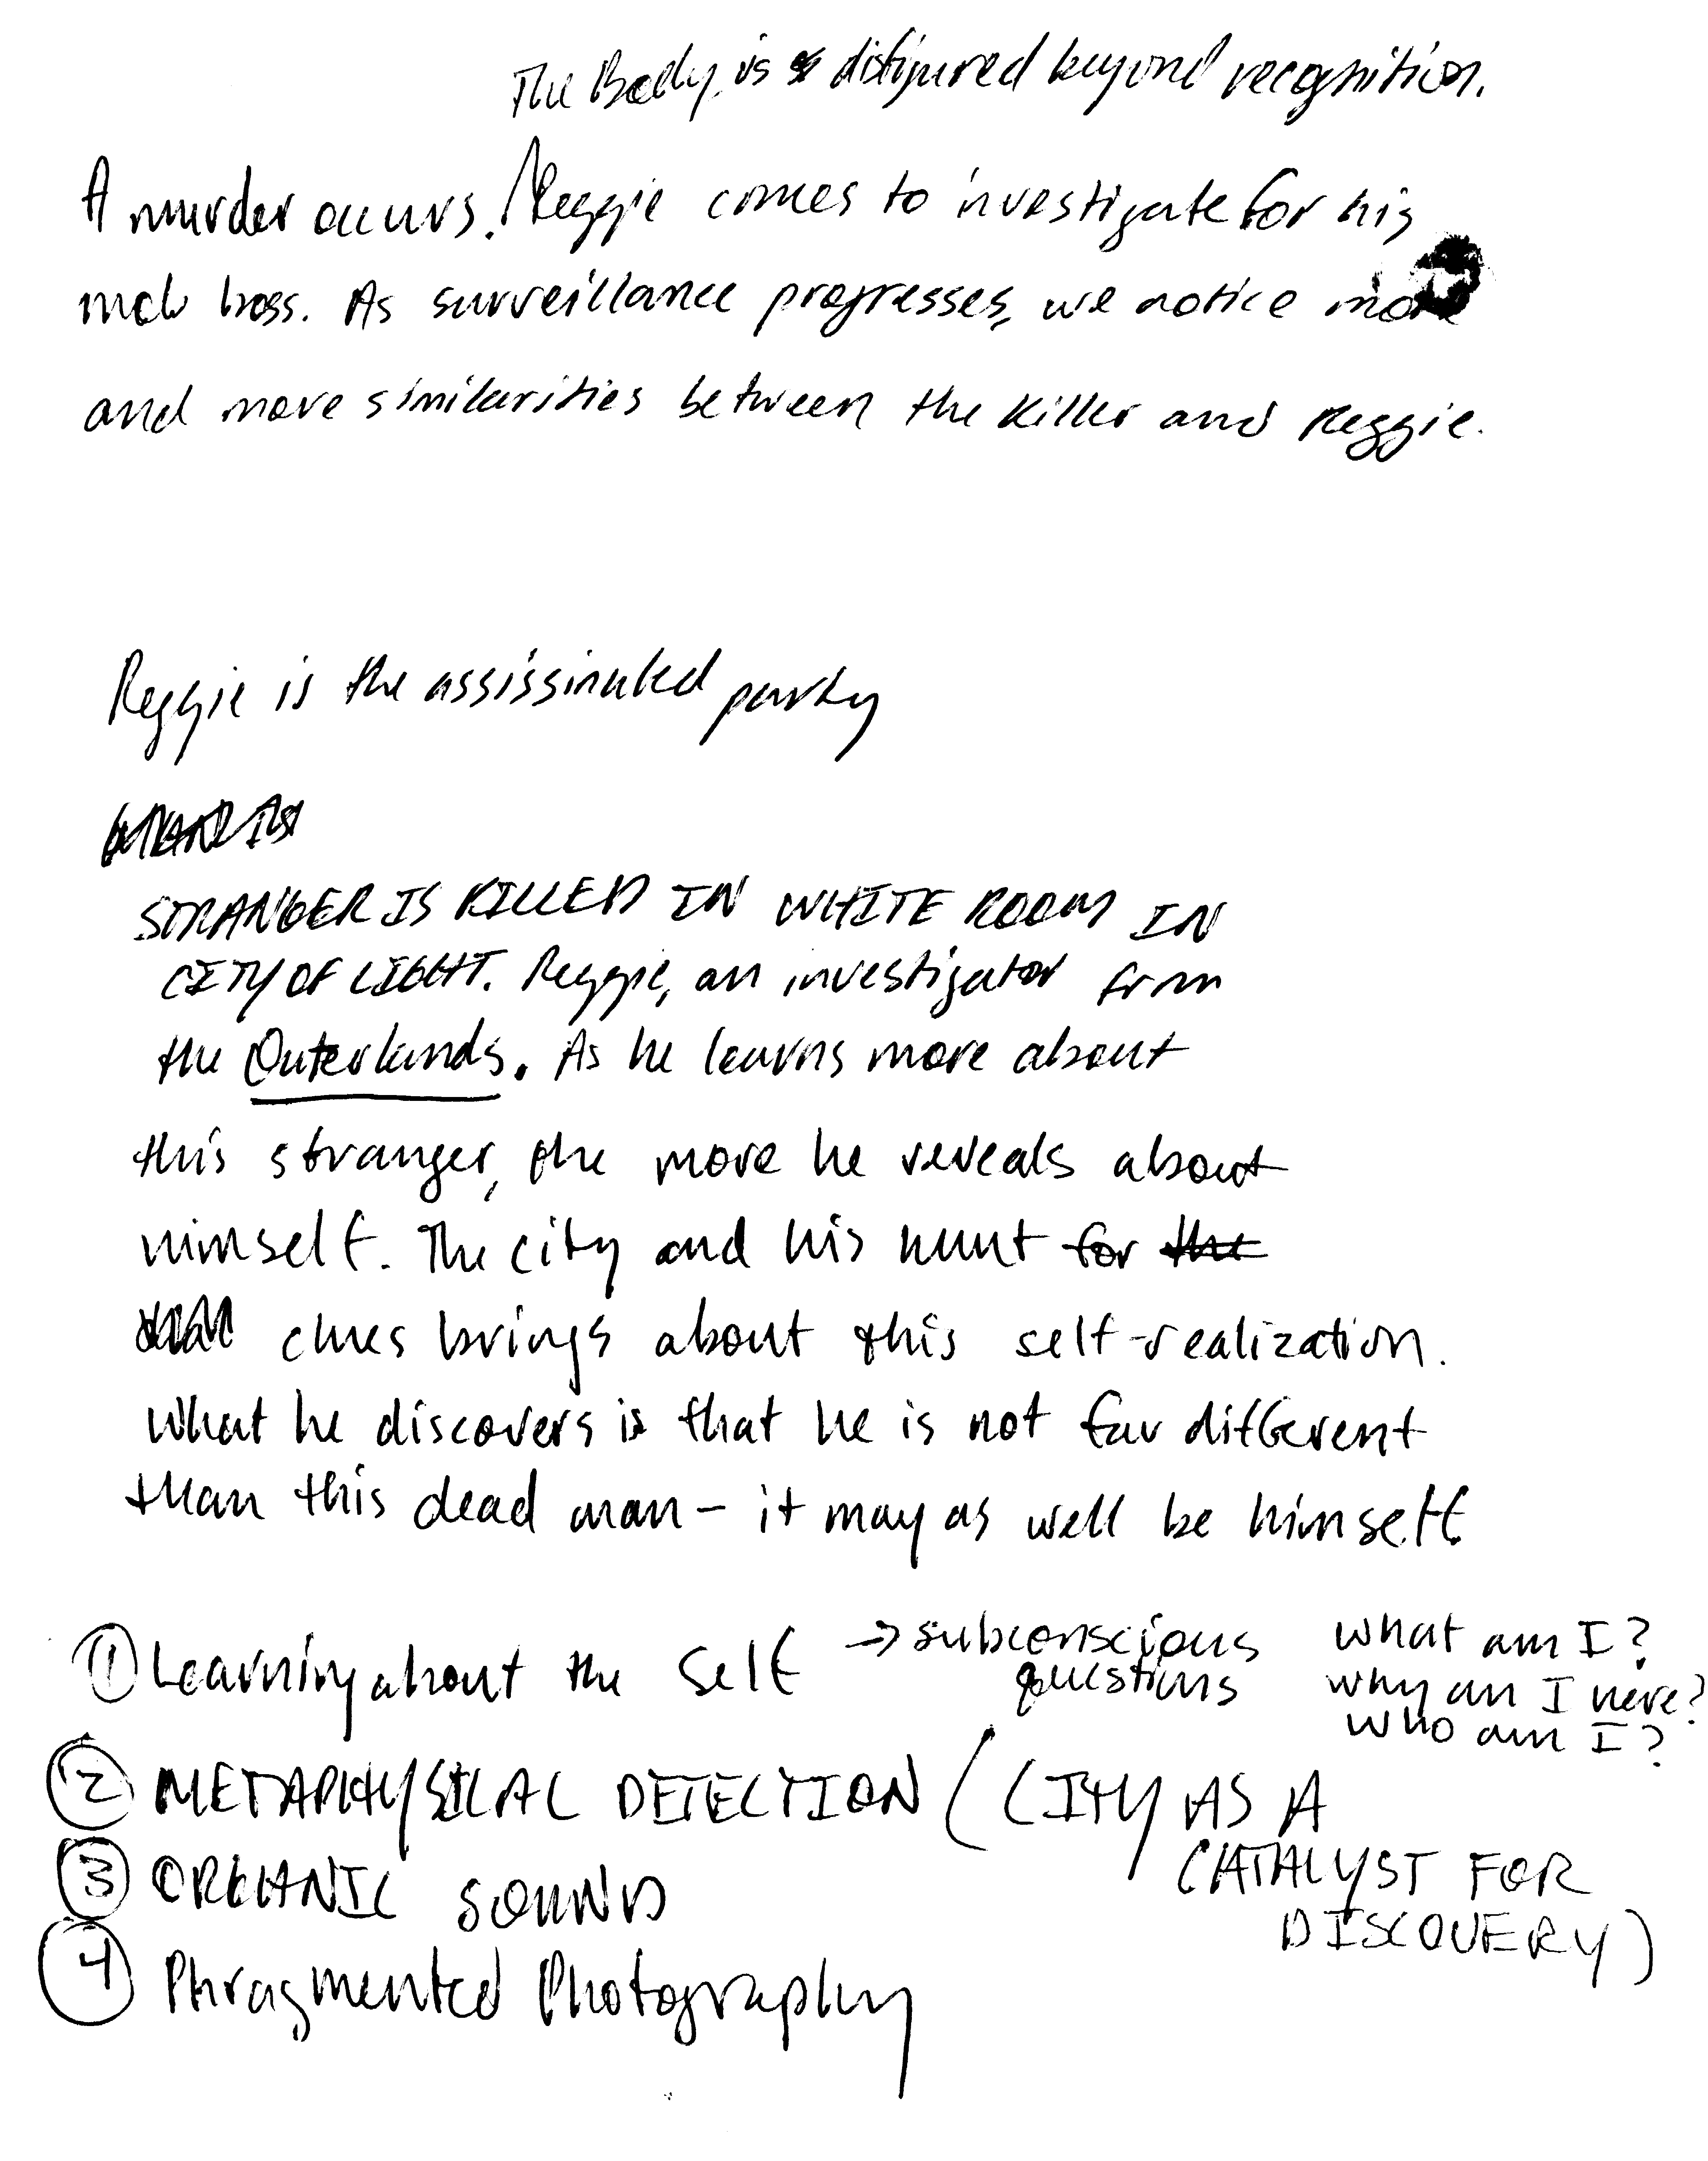 The Body is disfigured beyond recognition.
A murder occurs. Reggie comes to investigate for his
mob boss. As surveillance progresses, we notice more
and more similarities between the killer and Reggie.
Reggie is the assissinated party
STRANGER IS KILLED IN WHITE ROOM IN
CITY OF LIGHT. Reggie, an investigator from
the Outerlands. As he learns more about
this stranger, the more he reveals about
himself. The city and his hunt for the
clues brings about this self-realization.
What he discovers is that he is not far different
than this dead man - it may as well be himself
① Learning about the Self → subconscious questions
what am I?
why am I here?
who am I?
② METAPHYSICAL DETECTION (CITY AS A
CATALYST FOR
DISCOVERY)
③ ORGANIC SOUNDS
④ Phragmented Photography